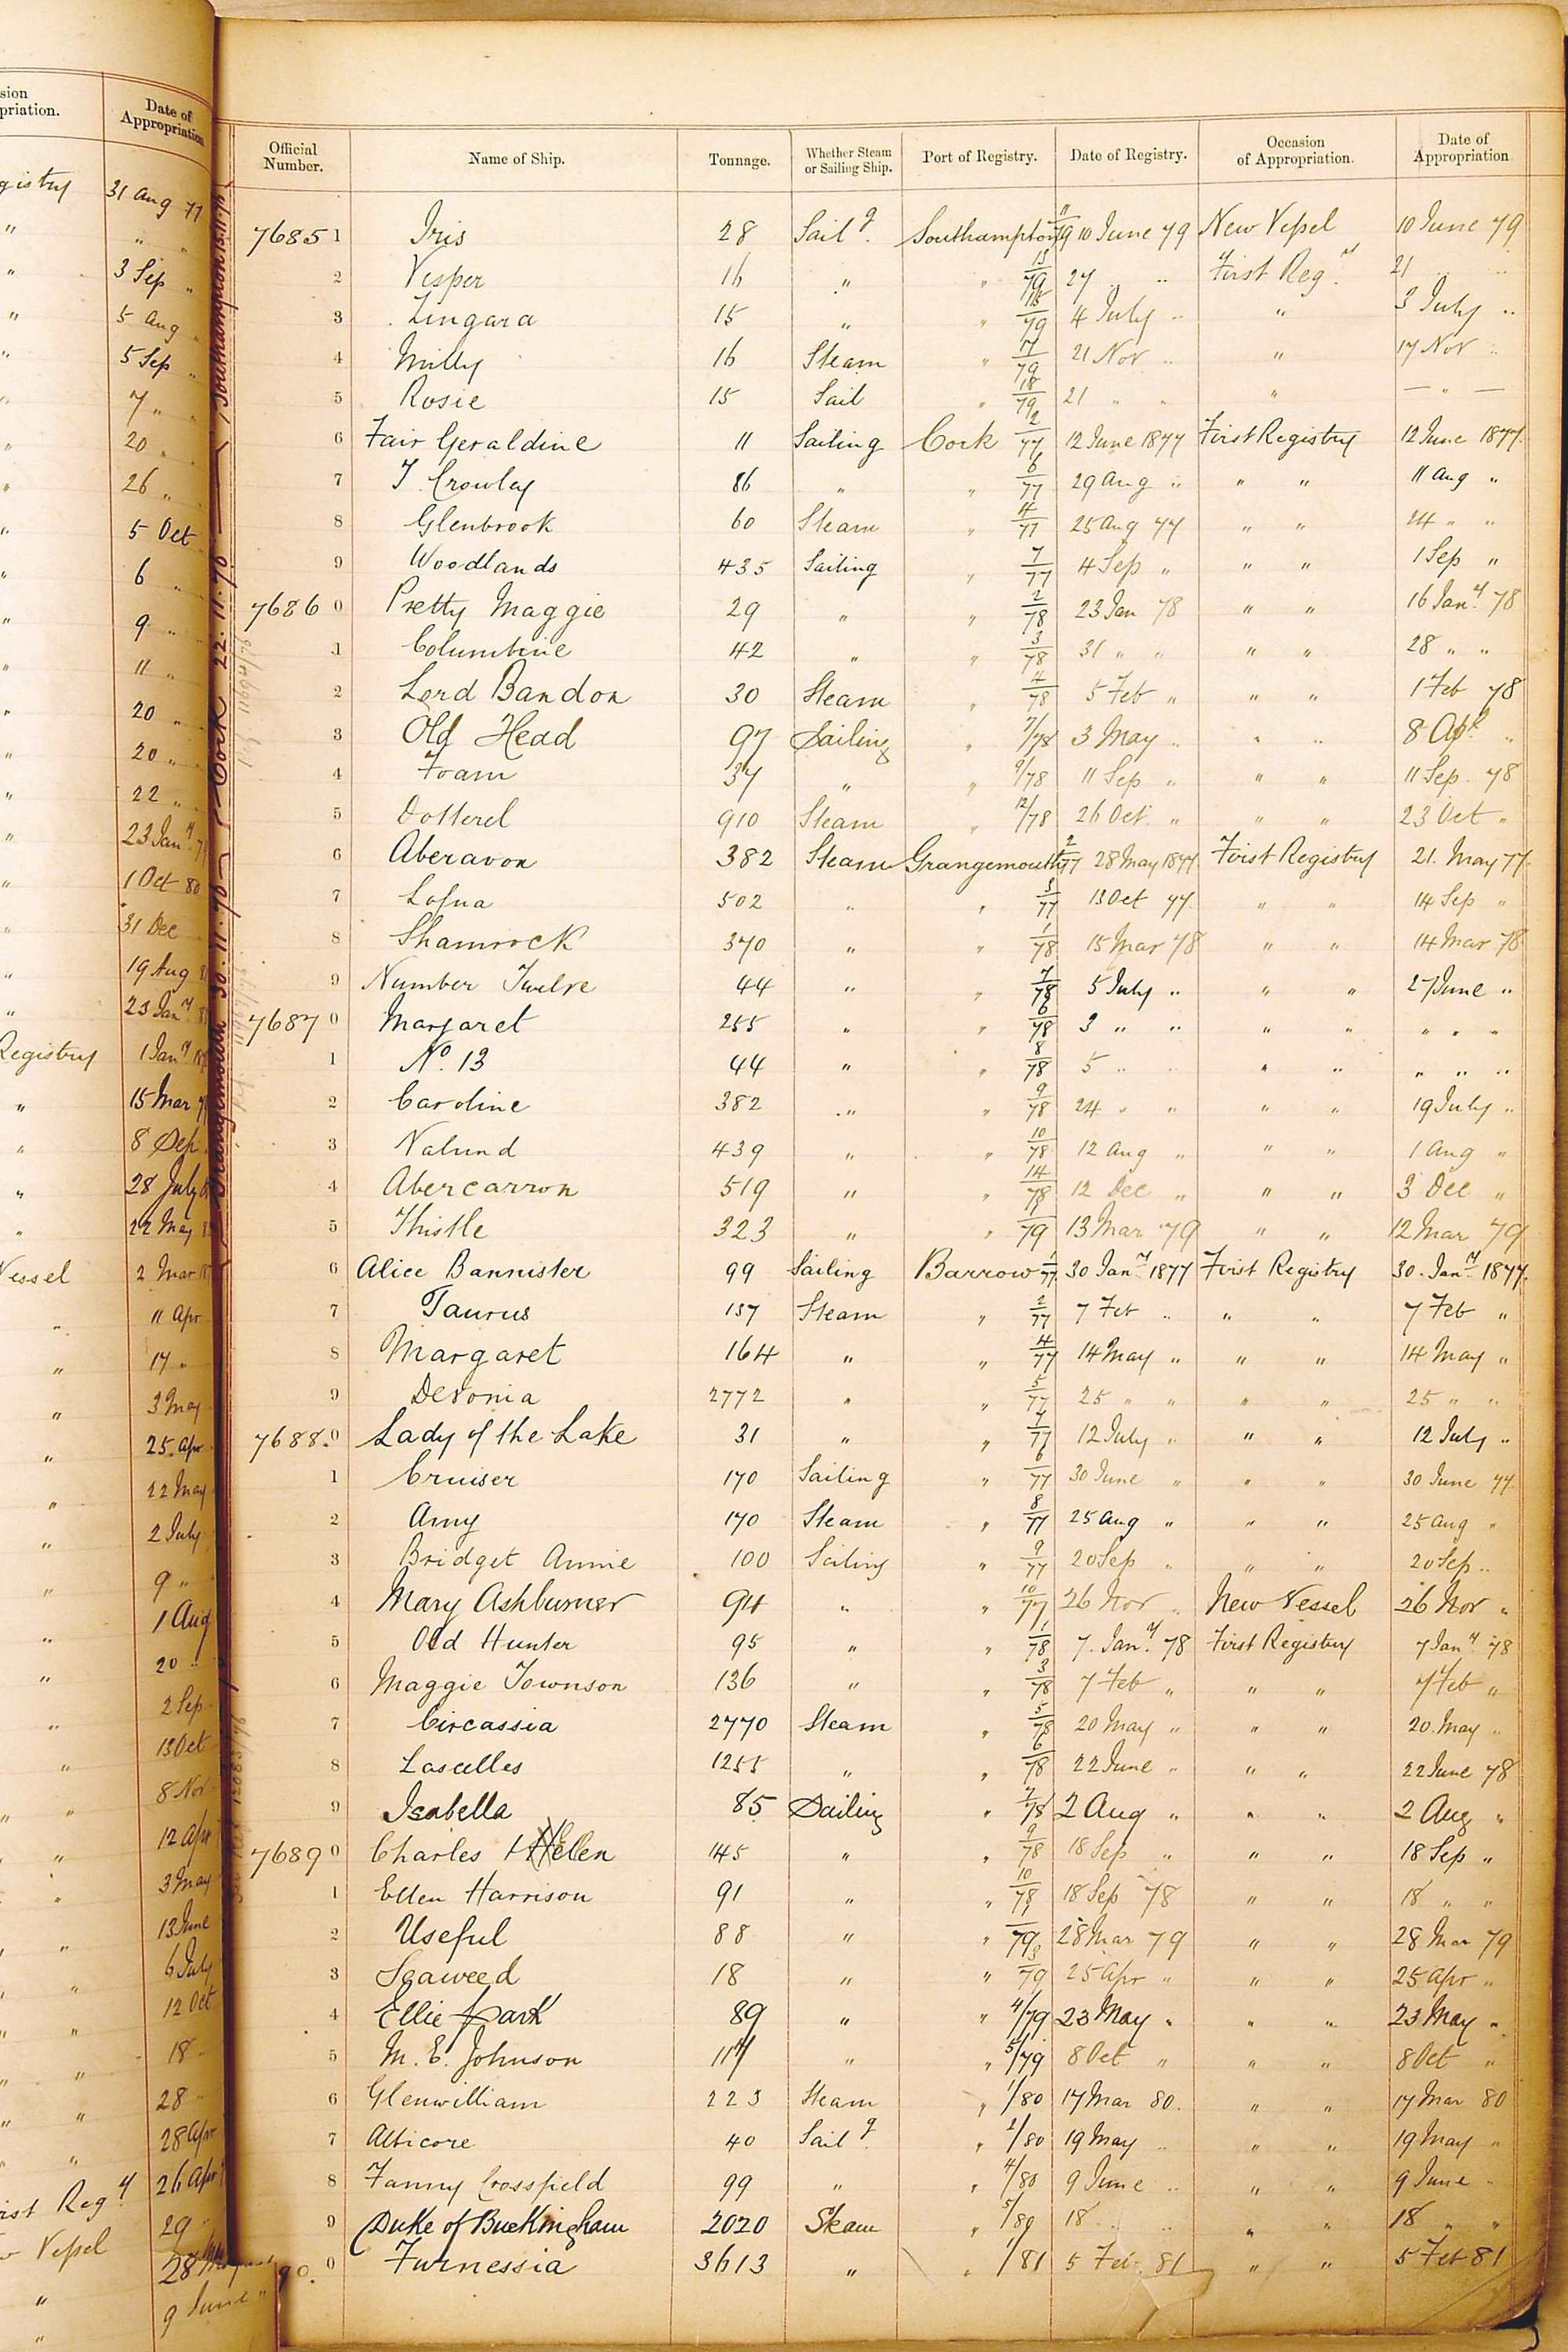 sion
priation.
Date of
Appropriation
gistry 31 Aug 77
" " "
" 3 Sep "
" 5 Aug
" 5 Sep "
" 7 " "
" 20 "
" 26 "
" 5 Oct
" 6 "
" 9 "
" 11 "
" 20 "
" 20 "
" 22 "
" 23 Jany
" 1 Oct 80
" 31 Dec
" 19 Aug
" 23 Jany
Registry 1 Jany
" 15 Mar
" 8 Sep
" 28 July
" 22 May
Vessel 2 Mar
" 11 Apr
" 17 "
" 3 May
" 25 Apr
" 22 May
" 2 July
" 9 "
" 1 Aug
" 20 "
" 2 Sep
" 13 Oct
" " 8 Nov
" " 12 Apr
" " 3 May
" " 13 June
" " 6 July
" " 12 Oct
" " 18
" " 28
" " 28 Apr
irst Regy 26 Apr
Vessel 29
" 28
" 9 June "
Southampton
Cork 22.11.76
Grangemouth 30.11.76
Official Number. Name of Ship. Tonnage. Whether Steam or Sailing Ship. Port of Registry. Date of Registry. Occasion of Appropriation. Date of Appropriation
7685 1 Iris 28 Sailg. Southampton 11/79 10 June 79 New Vessel 10 June 79
2 Vesper 16 " " 13/79 27 " " First Regy. 21 " "
3 Zingara 15 " " 15/79 4 July " " 3 July "
4 Milly 16 Steam " 17/79 21 Nov " " 17 Nov "
5 Rosie 15 Sail " 18/79 21 " " " — " —
6 Fair Geraldine 11 Sailing Cork 2/77 12 June 1877 First Registry 12 June 1877
7 T. Crowley 86 " " 6/77 29 Aug " " " 11 Aug "
8 Glenbrook 60 Steam " 4/77 25 Aug 77 " " 24 " "
9 Woodlands 435 Sailing " 7/77 4 Sep " " " 1 Sep "
7686 0 Pretty Maggie 29 " " 2/78 23 Jan 78 " " 16 Jany. 78
1 Columbine 42 " " 3/78 31 " " " " 28 " "
2 Lord Bandon 30 Steam " 4/78 5 Feb " " " 1 Feb 78
3 Old Head 97 Sailing " 7/78 3 May " " " 8 Apl "
4 Foam 37 " " 9/78 11 Sep " " " 11 Sep 78
5 Dotterel 910 Steam " 12/78 26 Oct " " " 23 Oct "
6 Aberavon 382 Steam Grangemouth 2/77 28 May 1877 First Registry 21 May 77
7 Lofna 502 " " 3/77 13 Oct 77 " " 14 Sep "
8 Shamrock 370 " " 1/78 15 Mar 78 " " 14 Mar 78
9 Number Twelve 44 " " 7/78 5 July " " " 27 June "
7687 0 Margaret 255 " " 6/78 3 " " " " " " "
1 No. 13 44 " " 8/78 5 " " " " " " "
2 Caroline 382 " " 9/78 24 " " " " 19 July "
3 Nalund 439 " " 10/78 12 Aug " " " 1 Aug "
4 Abercarron 519 " " 14/78 12 Dec " " " 3 Dec "
5 Thistle 323 " " /79 13 Mar 79 " " 12 Mar 79
6 Alice Bannister 99 Sailing Barrow 1/77 30 Jany 1877 First Registry 30 Jany 1877
7 Taurus 137 Steam " 2/77 7 Feb " " " 7 Feb "
8 Margaret 164 " " 4/77 14 May " " " 14 May "
9 Devonia 2772 " " 5/77 25 " " " " 25 " "
7688 0 Lady of the Lake 31 " " 7/77 12 July " " " 12 July "
1 Cruiser 170 Sailing " 6/77 30 June " " " 30 June 77
2 Amy 170 Steam " 8/77 25 Aug " " " 25 Aug "
3 Bridget Annie 100 Sailing " 9/77 20 Sep " " " 20 Sep "
4 Mary Ashburner 94 " " 10/77 26 Nov " New Vessel 26 Nov "
5 Old Hunter 95 " " 1/78 7 Jany. 78 First Registry 7 Jany 78
6 Maggie Townson 136 " " 3/78 7 Feb " " " 7 Feb "
7 Circassia 2770 Steam " 5/78 20 May " " " 20 May "
8 Lascelles 1255 " " 6/78 22 June " " " 22 June 78
9 Isabella 85 Sailing " 7/78 2 Aug " " " 2 Aug "
7689 0 Charles Helen 145 " " 9/78 18 Sep " " " 18 Sep "
1 Ellen Harrison 91 " " 10/78 18 Sep 78 " " 18 " "
2 Useful 88 " " /79 28 Mar 79 " " 28 Mar 79
3 Seaweed 18 " " 3/79 25 Apr " " " 25 Apr "
4 Ellie Park 89 " " 4/79 23 May " " " 23 May "
5 M. E. Johnson 114 " " 5/79 8 Oct " " " 8 Oct "
6 Glenwilliam 223 Steam " 1/80 17 Mar 80. " " 17 Mar 80
7 Albicore 40 Sailg. " 2/80 19 May " " " 19 May "
8 Fanny Crossfield 99 " " 4/80 9 June " " " 9 June "
9 Duke of Buckingham 2020 Steam " 5/80 18 " " " " 18 " "
90. 0 Furnessia 3613 " " 1/81 5 Feb. 81 " " 5 Feb 81